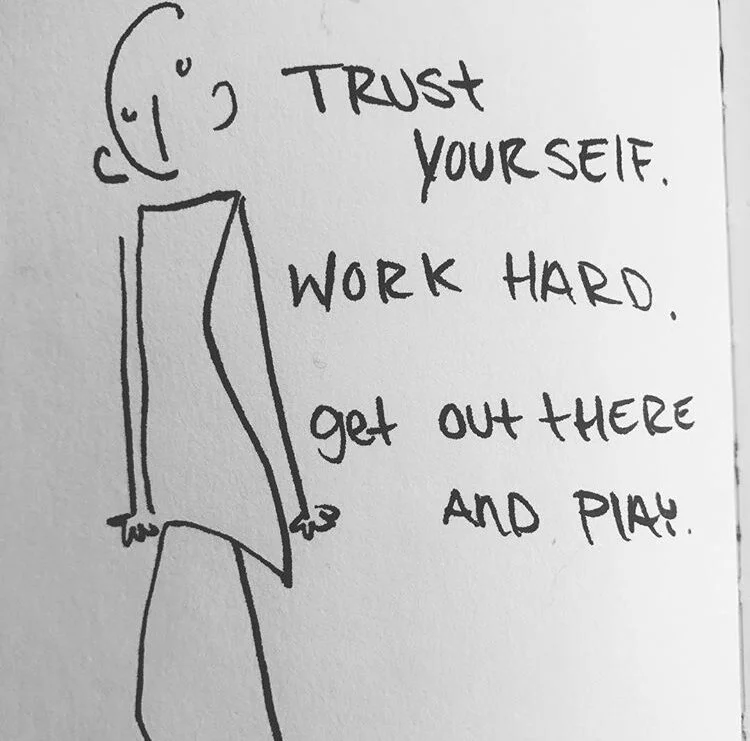 TRUSt
YOURSElF.
WORK HARD.
get out tHERE
AND PlAY.